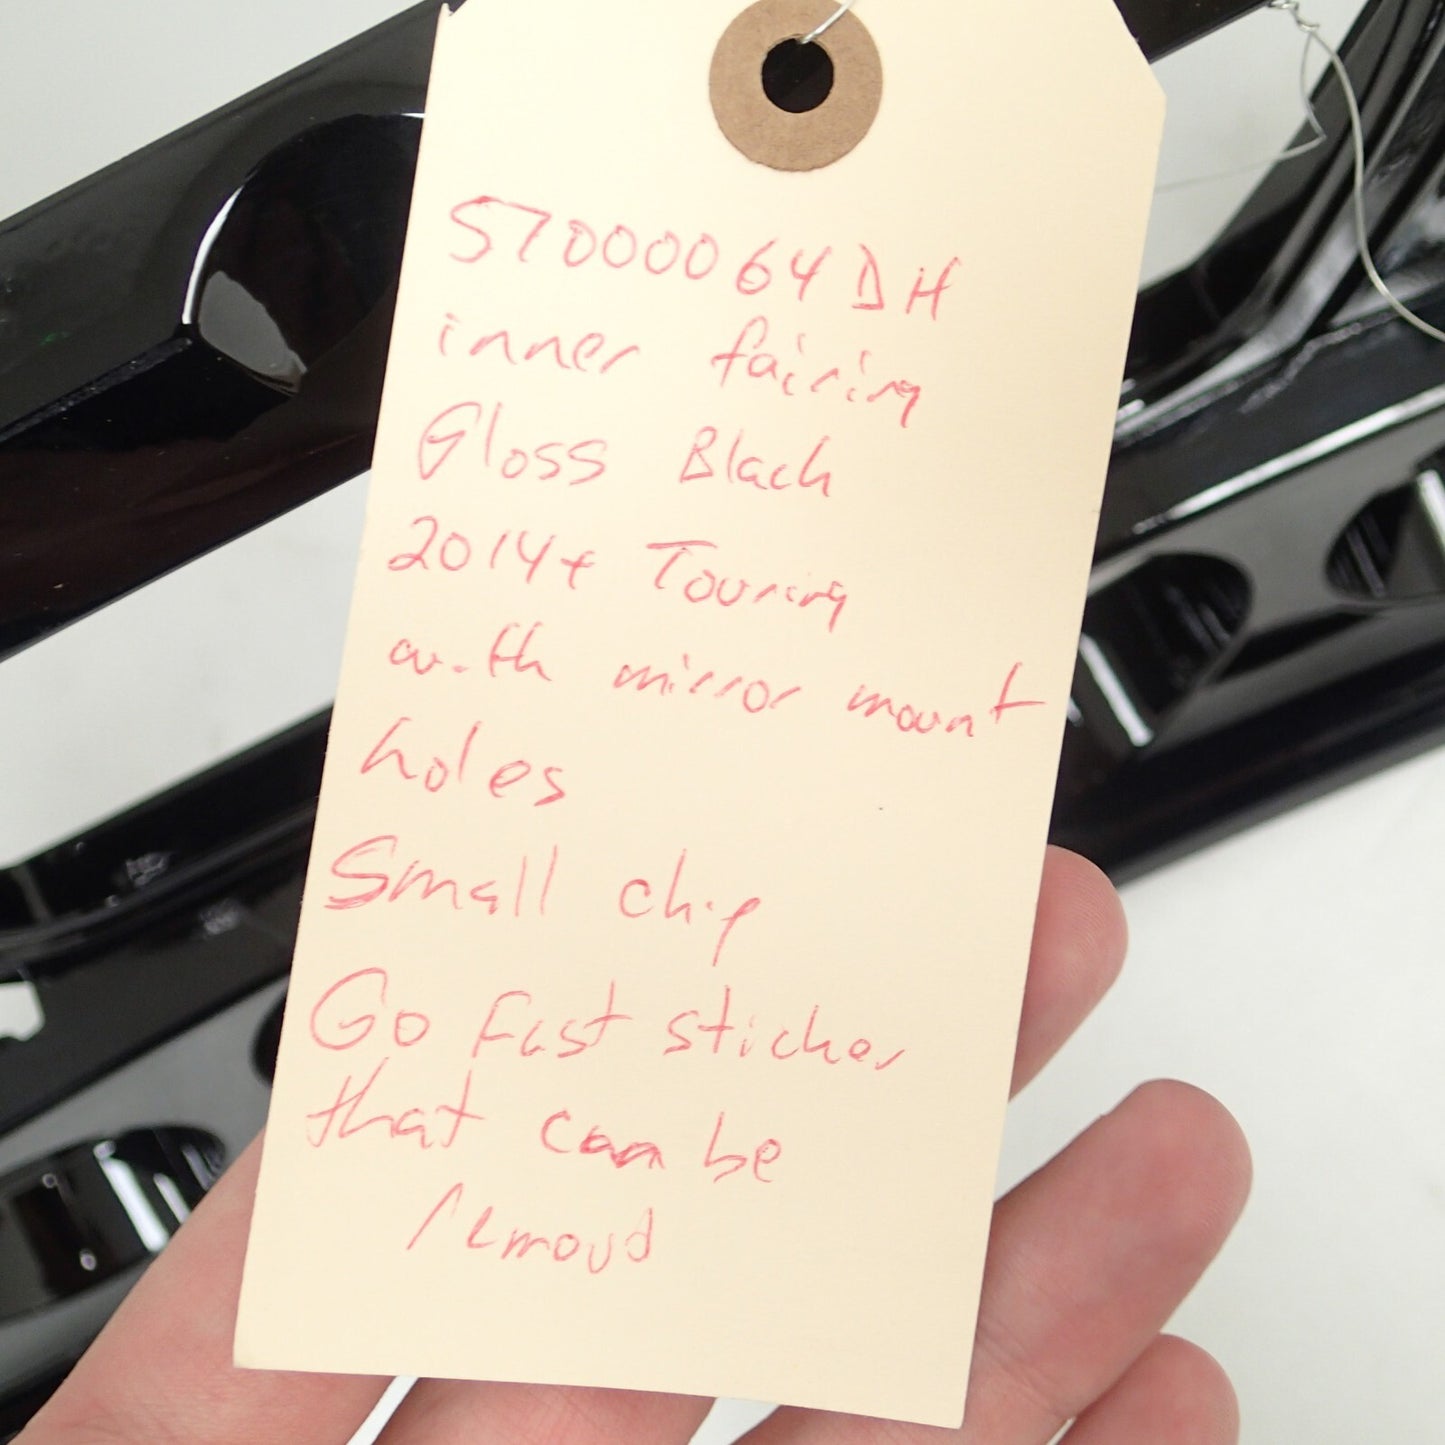 57000064DH
inner fairing
Gloss Black
2014+ Touring
with mirror mount
holes
Small chip
Go Fast sticker
that can be
removd